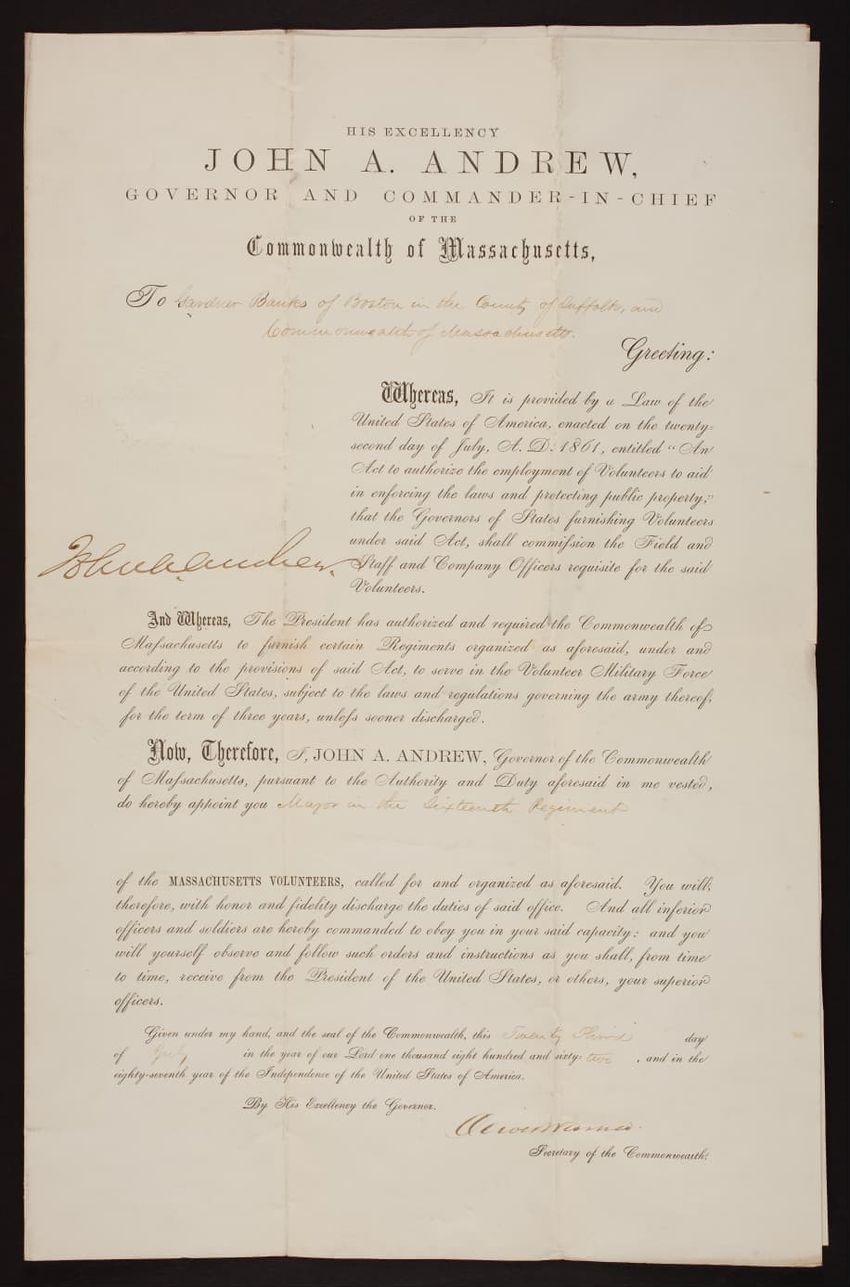 HIS EXCELLENCY
JOHN A. ANDREW,
GOVERNOR AND COMMANDER-IN-CHIEF
OF THE
Commonwealth of Massachusetts,
To Gardner Banks of Boston in the County of Suffolk, and
Commonwealth of Massachusetts.
Greeting:
Whereas, It is provided by a Law of the
United States of America, enacted on the twenty-
second day of July, A. D. 1861, entitled "An
Act to authorize the employment of Volunteers to aid
in enforcing the laws and protecting public property,"
that the Governors of States furnishing Volunteers
under said Act, shall commission the Field and
John A. Andrew. Staff and Company Officers requisite for the said
Volunteers.
And Whereas, The President has authorized and required the Commonwealth of
Massachusetts to furnish certain Regiments organized as aforesaid, under and
according to the provisions of said Act, to serve in the Volunteer Military Force
of the United States, subject to the laws and regulations governing the army thereof,
for the term of three years, unless sooner discharged.
Now, Therefore, I, JOHN A. ANDREW, Governor of the Commonwealth
of Massachusetts, pursuant to the Authority and Duty aforesaid in me vested,
do hereby appoint you Major in the Sixteenth Regiment
of the MASSACHUSETTS VOLUNTEERS, called for and organized as aforesaid. You will,
therefore, with honor and fidelity discharge the duties of said office. And all inferior
officers and soldiers are hereby commanded to obey you in your said capacity; and you
will yourself observe and follow such orders and instructions as you shall, from time
to time, receive from the President of the United States, or others, your superior
officers.
Given under my hand, and the seal of the Commonwealth, this Twenty Third day
of July in the year of our Lord one thousand eight hundred and sixty-two, and in the
eighty-seventh year of the Independence of the United States of America.
By His Excellency the Governor.
Oliver Warner
Secretary of the Commonwealth.